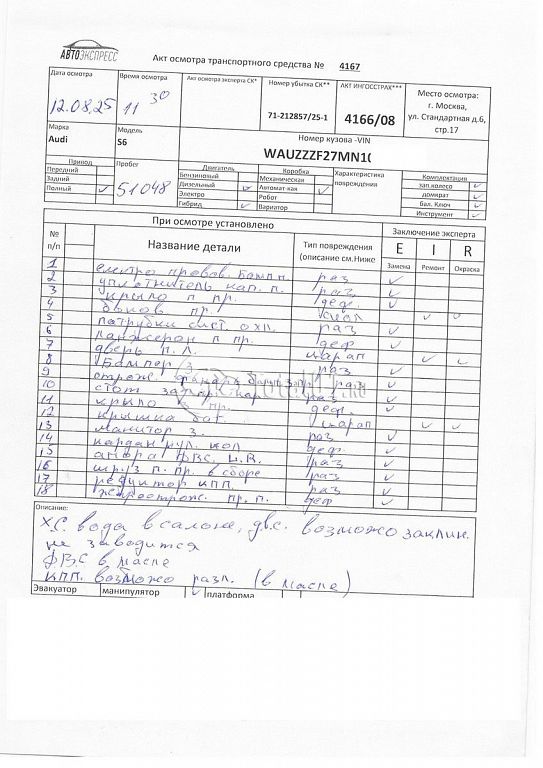 АВТОЭКСПРЕСС
Акт осмотра транспортного средства № 4167
Дата осмотра
12.08.25
Время осмотра
11 30
Акт осмотра эксперта СК*
Номер убытка СК**
71-212857/25-1
АКТ ИНГОССТРАХ***
4166/08
Место осмотра:
г. Москва,
ул. Стандартная д.6,
стр.17
Марка
Audi
Модель
S6
Номер кузова -VIN
WAUZZZF27MN1
Привод
Передний
Задний
Полный
Пробег
51048
Двигатель
Бензиновый
Дизельный
Электро
Гибрид
Коробка
Механическая
Автомат-кая
Робот
Вариатор
Характеристика
повреждения
Комплектация
зап.колесо
домкрат
бал. Ключ
Инструмент
При осмотре установлено
Заключение эксперта
№
п/п
Название детали
Тип повреждения
(описание см.Ниже
E
I
R
Замена
Ремонт
Окраска
1
2 електро провов. бамп п. раз
3 уплотнитель кап. п. раз
4 крыло п пр. деф.
5
6 патрубки сист. охл. раз
7 ланжерон п пр. деф
8 дверь п. л. царап
9 Бампер з. раз
10 раз
11 стоп
12 крыло з пр. деф.
13 крышка баг. царап
14 манитор з. раз
15 кардан рул. кол деф.
16 опора ДВС, раз
17 шруз п. пр. в сборе раз
18 редуктор кпп. раз
пр. п. деф
Описание:
Х.С. вода в салоне, двс. возможо заклин.
не заводится
ДВС в масле
КПП. возможо разл. (в масле)
Эвакуатор
манипулятор
платформа